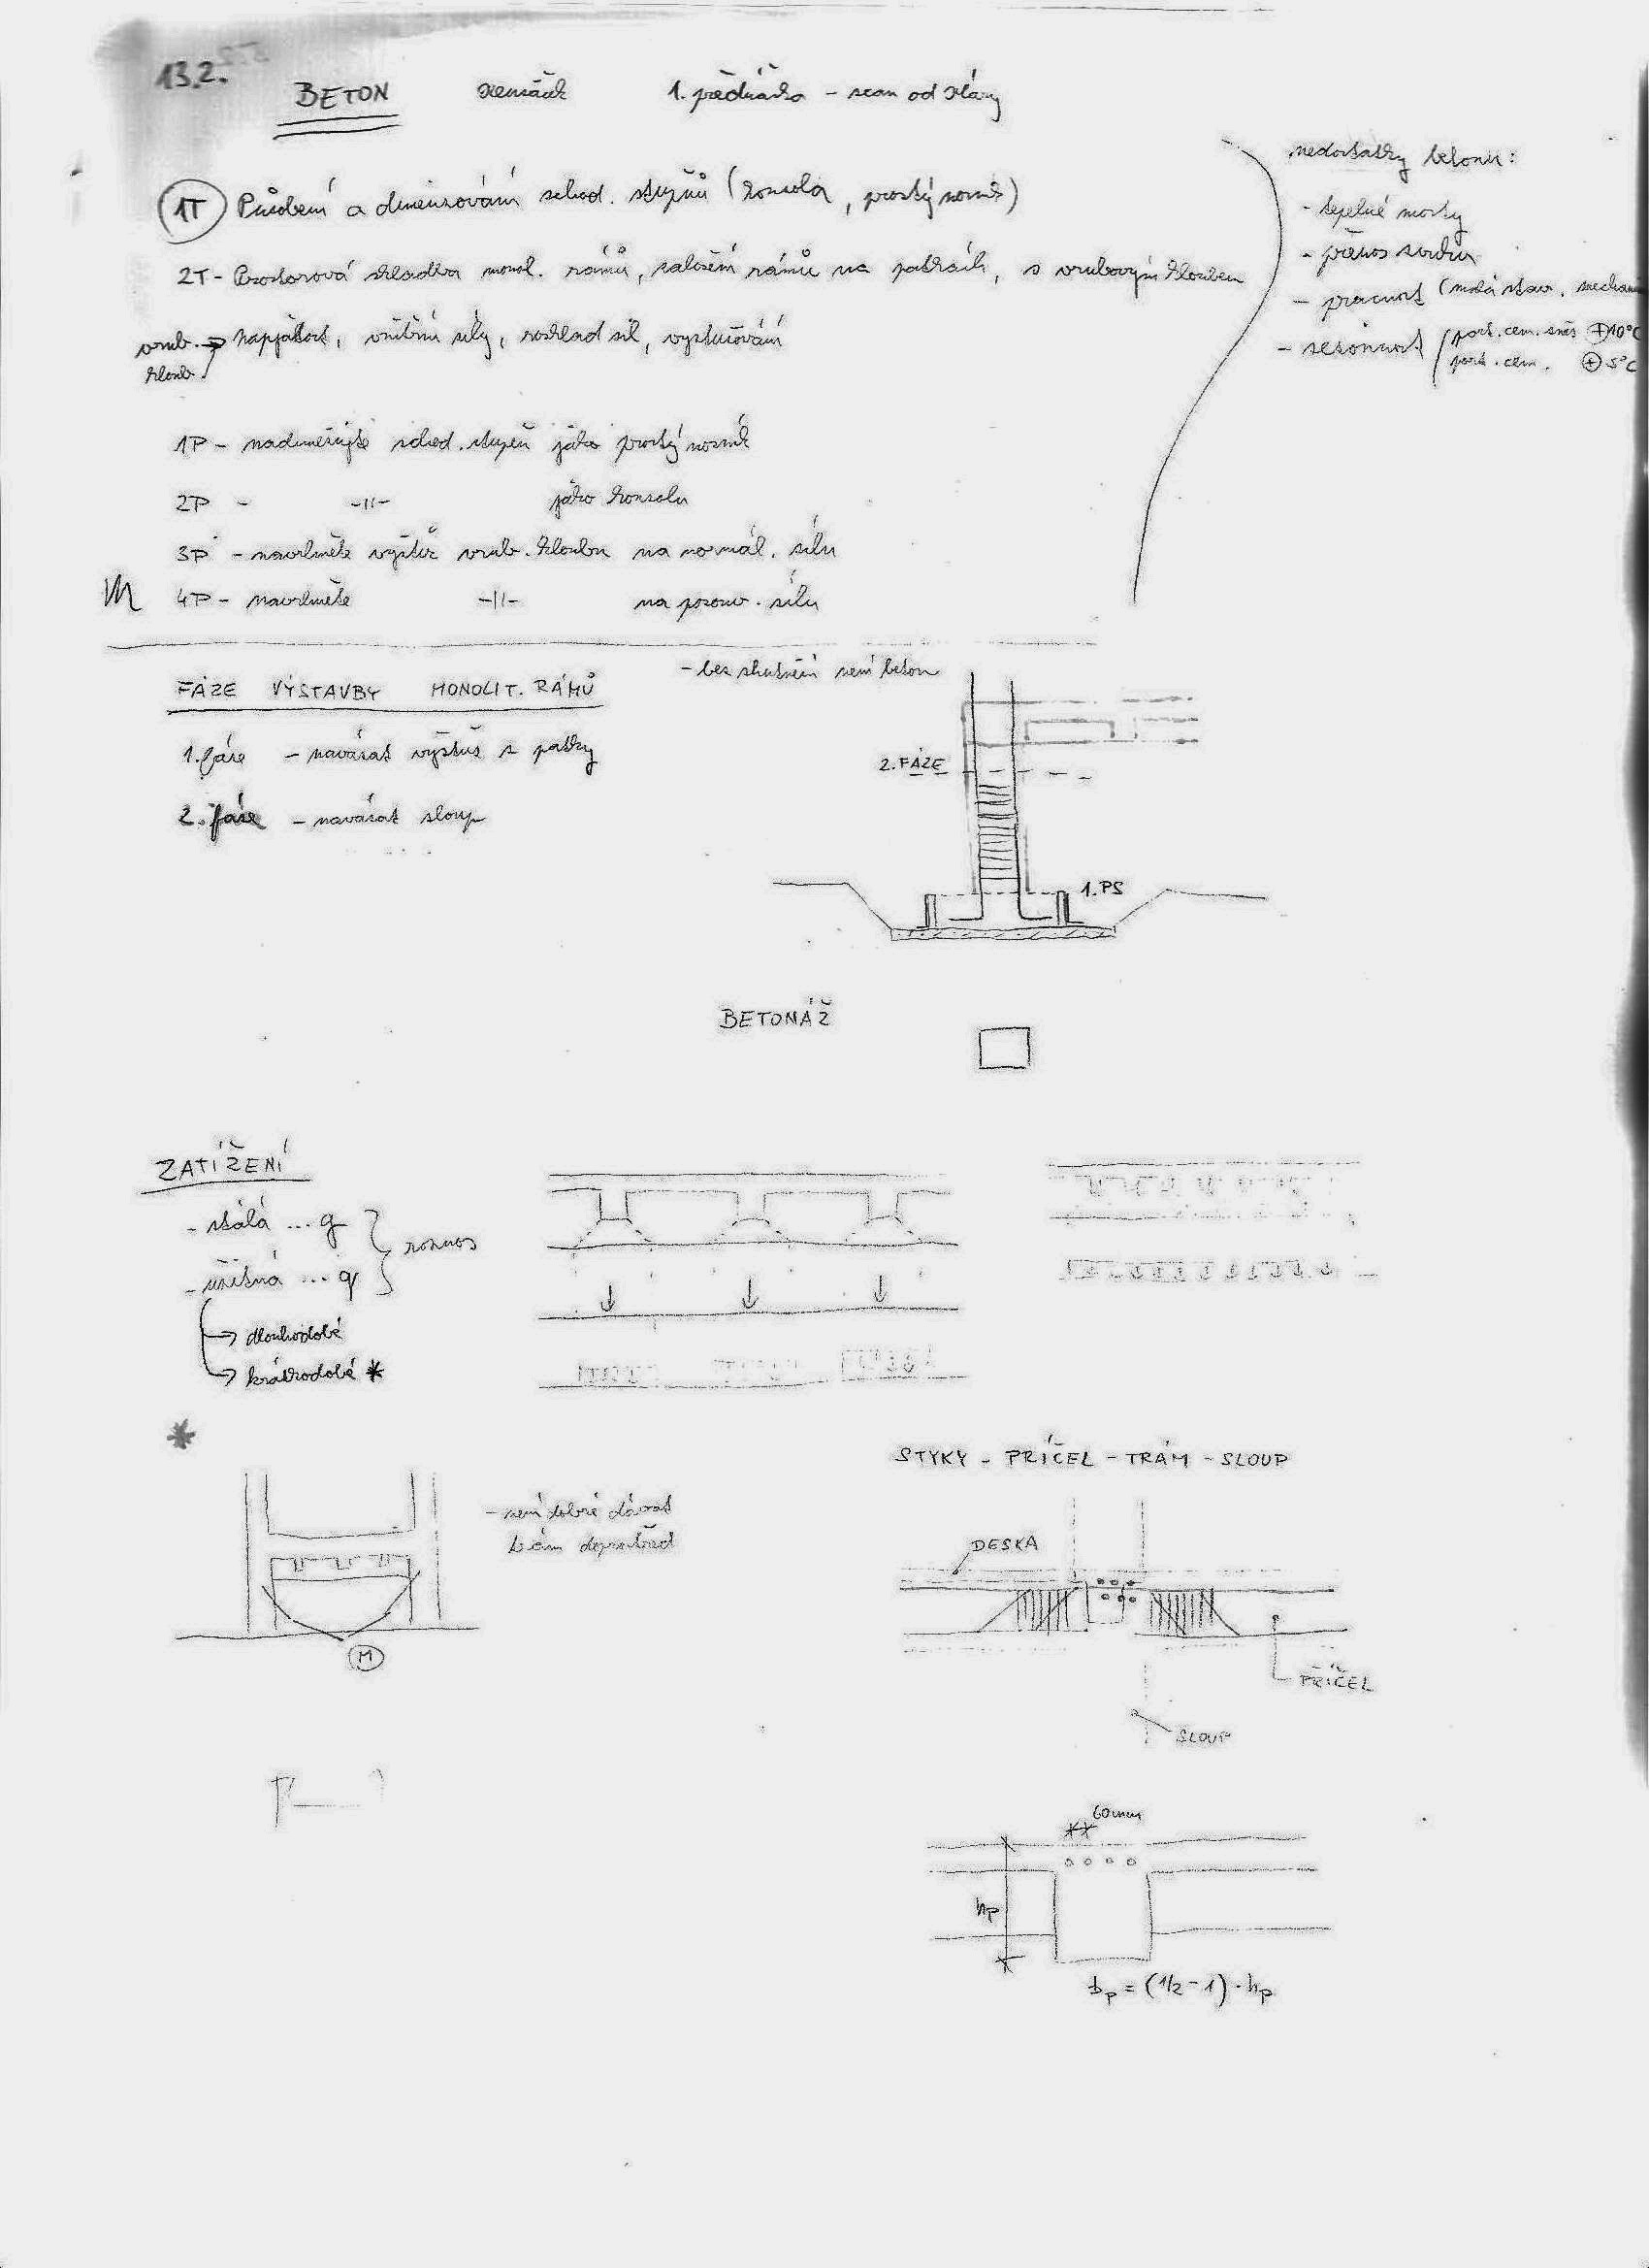 13.2.
BETON 1. přednáška - scan od Kláry
1T Působení a dimenzování schod. stupňů (konzola, prostý nosník)
2T - Prostorová skladba monol. rámů, založení rámů na patkách, s vrubovým kloubem
vrub. kloub → napjatost, vnitřní síly, rozklad sil, vyztužování
1P - nadimenzujte schod. stupeň jako prostý nosník
2P - -||- jako konzolu
3P - navrhněte výztuž vrub. kloubu na normál. sílu
4P - navrhněte -||- na posouv. sílu
nedostatky betonu:
- tepelné mosty
- přenos zvuku
- pracnost (malá stav.
- sezónnost port. cem. směs ⊕10°C
port. cem. ⊕5°C
FÁZE VÝSTAVBY MONOLIT. RÁMŮ
- bez zhutnění není beton
1. fáze - navázat výztuž z patky
2. fáze - navázat sloup
2. FÁZE
1. PS
BETONÁŽ
ZATÍŽENÍ
- stálá ... g
- užitná ... q
roznos
→ dlouhodobé
→ krátkodobé *
*
- není dobré dávat
trám doprostřed
M
STYKY - PŘÍČEL - TRÁM - SLOUP
DESKA
PŘÍČEL
SLOUP
60mm
hp
bp = (1/2 - 1) · hp